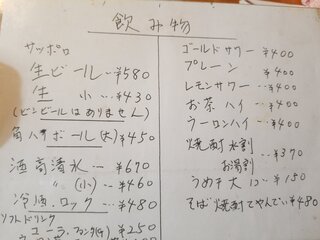 飲み物
サッポロ
生ビール…¥580
生 小…¥430
(ビンビールはありません)
角ハイボール(大)¥450
酒 高清水…¥670
〃 (小)…¥460
冷酒.ロック…¥480
ソフトドリンク
コーラ ¥250
ゴールドサワー…¥400
プレーン…¥400
レモンサワー…¥400
お茶ハイ…¥400
ウーロンハイ…¥400
焼酎 水割
お湯割…¥370
うめ干大 1コ…¥150
そば焼酎 てやんでい ¥480